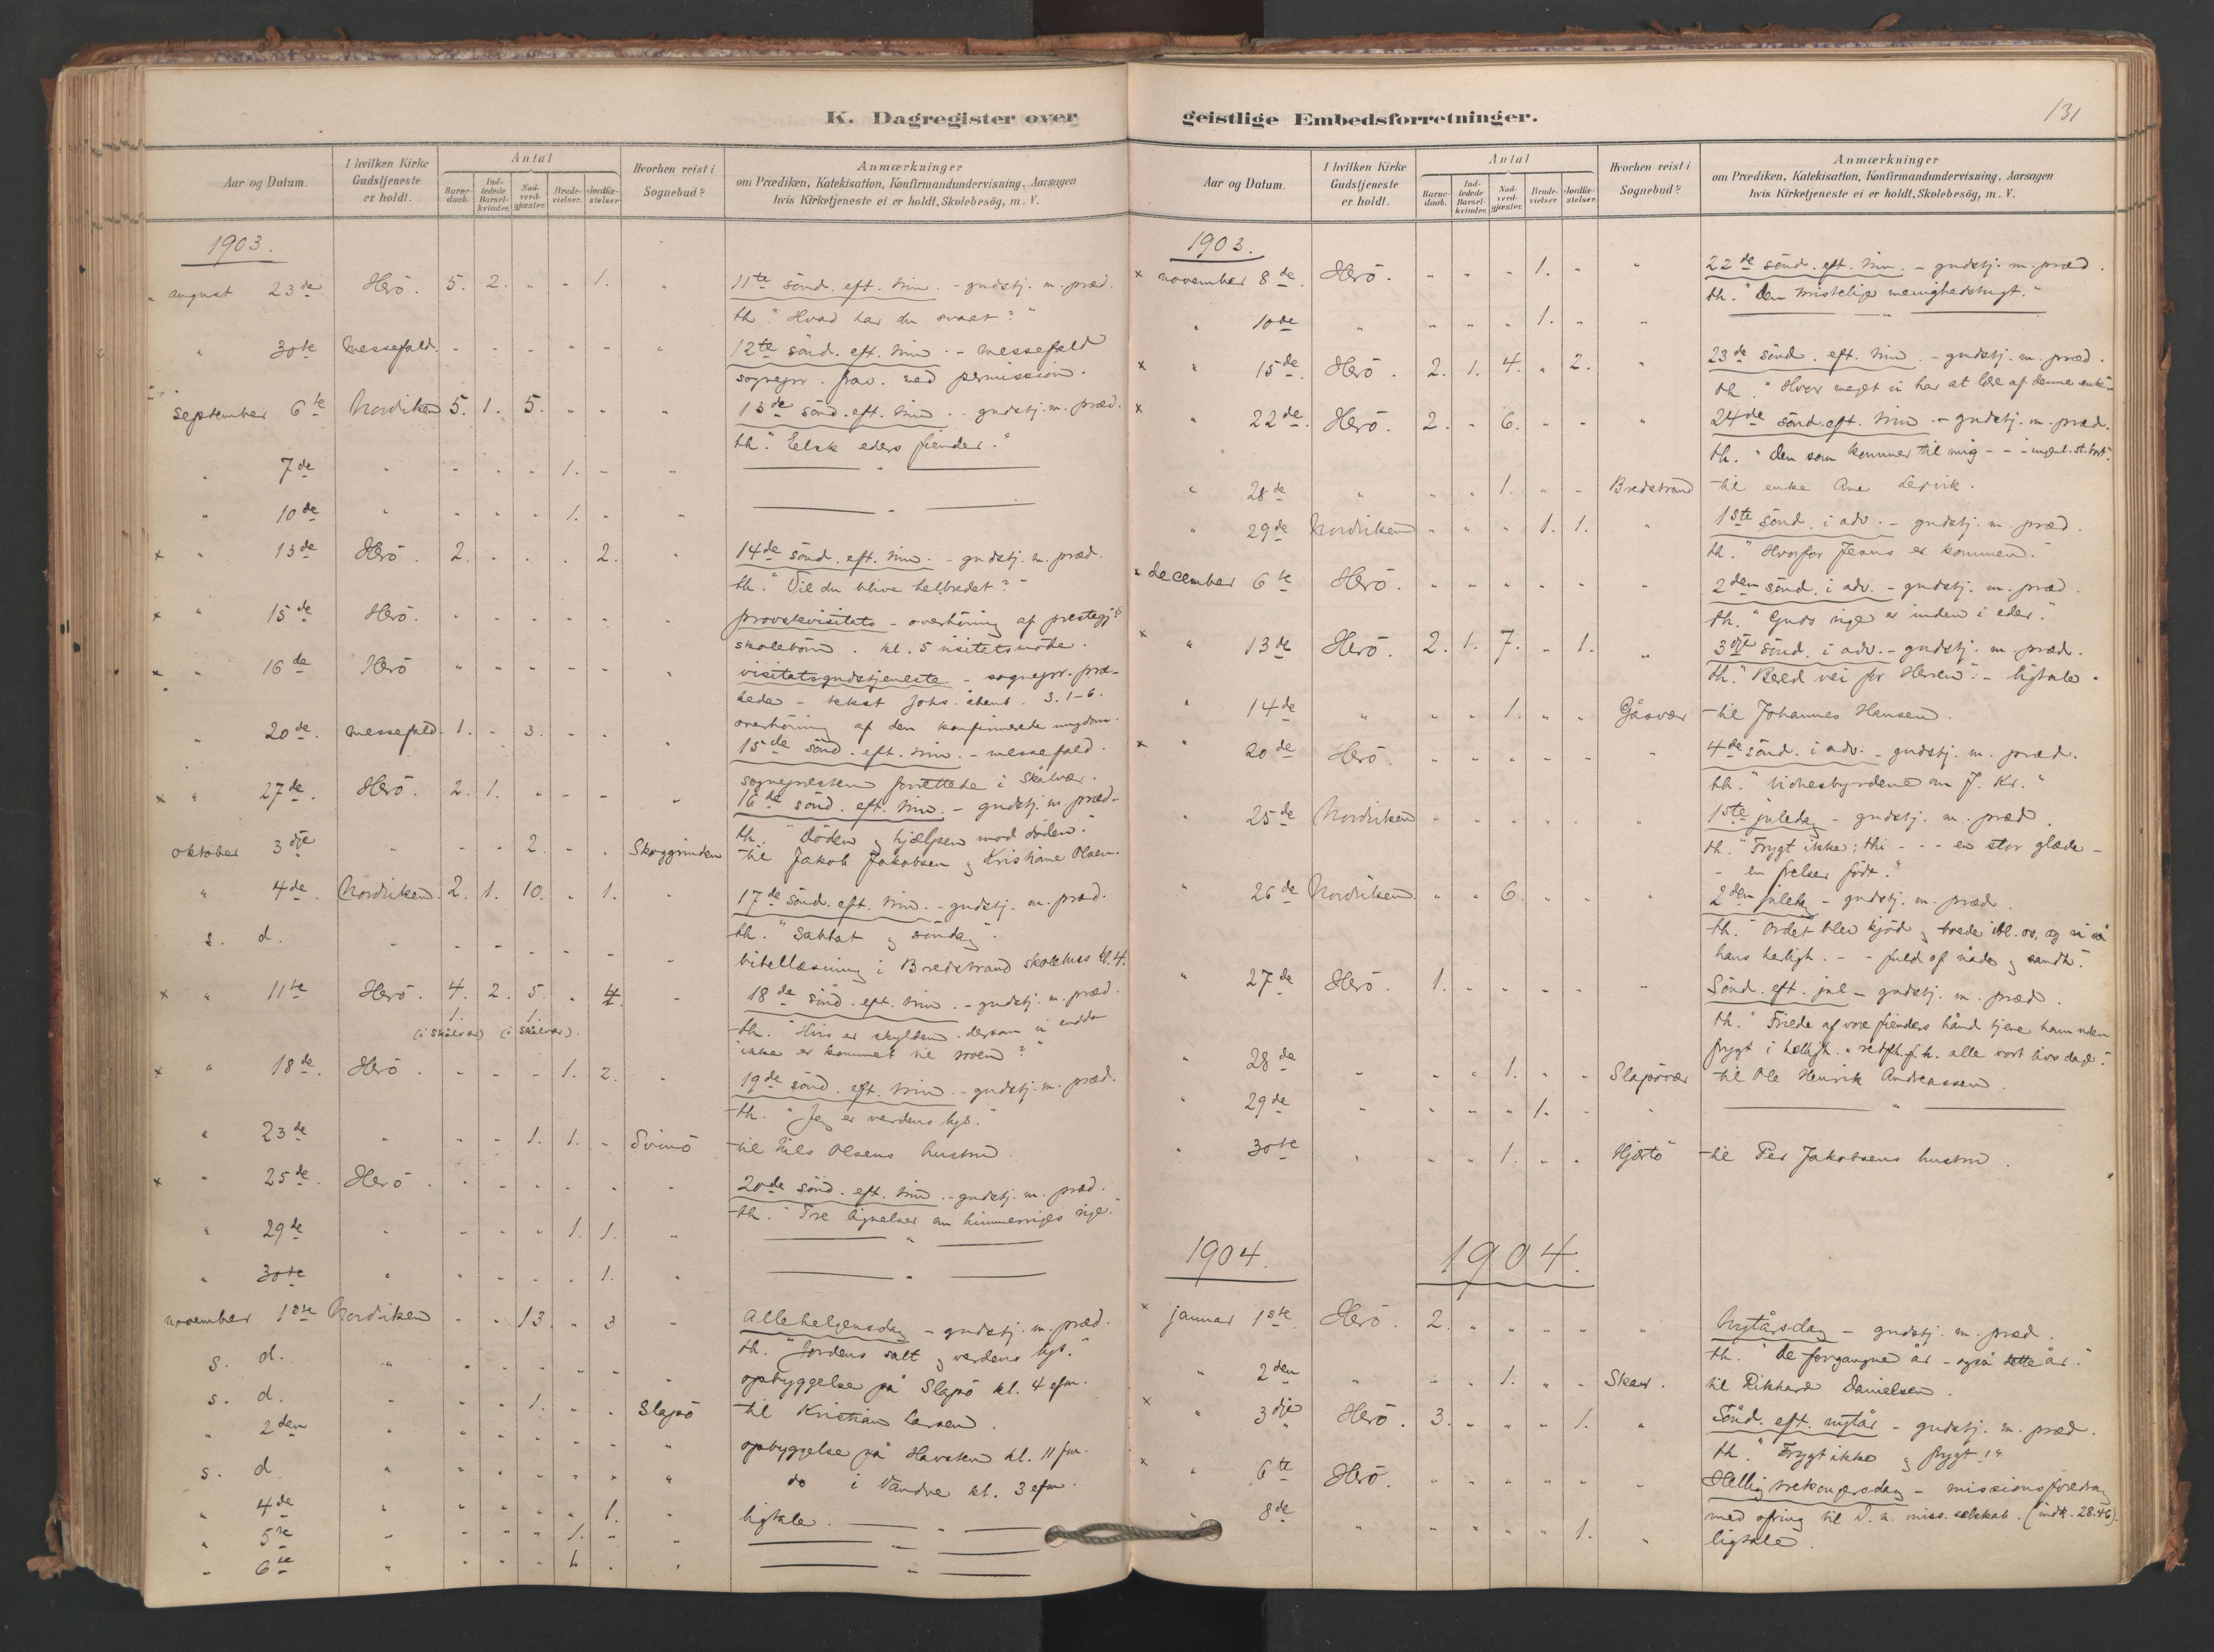 K. Dagregister over
Aar og Datum.
I hvilken Kirke Gudstjeneste er holdt.
Antal
Barnedaab.
Indledede Barselkvinder.
Nadverdgjæster.
Brudevielser.
Jordfæstelser
Hvorhen reist i Sognebud?
Anmærkninger
om Prædiken, Katekisation, Konfirmandundervisning, Aarsagen
hvis Kirketjeneste ei er holdt, Skolebesög, m. V.
1903.
" august 23de Herö. 5. 2. " " 1. " 11te sönd. eft. trin. - gudstj. m. præd.
th. "Hvad har du svaret?"
" 30te Messefald. - - - " - " 12te sönd. eft. trin. - messefald
sognepr. frav. med permission.
september 6te Nordviken 5. 1. 5. " - - 13de sönd. eft. trin. - gudstj. m. præd.
th. "Elsk eders fiender."
" 7de " - - - 1. - "
" 10de " - - - 1. - "
x " 13de Herö. 2. - - - 2. " 14de sönd. eft. trin. - gudstj. m. præd.
th. "Vil du blive helbredet?"
x " 15de Herö. - - - - - " provstevisitats - overhöring af prestegj.s
skolebörn. kl. 5 visitatsmöde.
x " 16de Herö " " - - - " visitatsgudstjeneste - sognepr. præ-
kede - tekst Johs. åbenb. 3. 1-6.
overhöring af den konfirmerede ungdom.
" 20de. messefald. 1. - 3. - - " 15de sönd. eft. trin. - messefald.
sognepresten forrettede i Skålvær.
x " 27de. Herö. 2. 1. - - - " 16de sönd. eft. trin. - gudstj. m præd.
th. "Döden og hjælpen mod döden."
oktober 3dje " - - 2. - - til Jakob Jakobsen og Kristiane Olsen.
" 4de. Nordviken. 2. 1. 10. - 1. - 17de sönd. eft. trin. - gudstj. m. præd.
th. "Sabbat og söndag".
s. d. - - - - - - - bibellæsning i Bredstrand skolehus kl. 4.
x " 11te Herö. 4. 2. 5. - 4. - 18de sönd. eft. trin. - gudstj. m. præd.
1. (i Skålvær) 1. (i Skålvær). th. "Hvis er skylden, dersom vi endda
ikke er kommet til troen?"
x " 18de. Herö. - - - 1. 2. - 19de sönd. eft. trin. - gudstj. m. præd.
th. "Jeg er verdens lys."
" 23de " - - 1. 1. - Svinö til Nils Olsens hustru.
x " 25de. Herö. - - - - - - 20de sönd. eft. trin. - gudstj. m. præd.
th. "Tre lignelser om himmeriges rige."
" 29de " - - - 1. 1. "
" 30te " - - - - 1. "
november 1ste Nordviken - - 13. " 3 " Allehelgensdag - gudstj. m. præd.
th. "Jordens salt og verdens lys."
s. d. " - - - - - " opbyggelse på Slapö kl. 4 efm.
s. d. " - - 1. - - Slapö til Kristian Larsen.
" 2den " - - - - - " opbyggelse på Havsten kl. 11 fm.
s. d. " - - - - - " do i Vandve kl. 3 efm.
" 4de " - - - - 1. " ligtale.
" 5te " - - - 1. - "
" 6te " - - - 1. - "
geistlige Embedsforretninger.
131
Aar og Datum.
I hvilken Kirke Gudstjeneste er holdt.
Antal
Barnedaab.
Indledede Barselkvinder.
Nadverdgjæster.
Brudevielser.
Jordfæstelser.
Hvorhen reist i Sognebud?
Anmærkninger
om Prædiken, Katekisation, Konfirmandundervisning, Aarsagen
hvis Kirketjeneste ei er holdt, Skolebesög, m. V.
1903.
x november 8de. Herö. - - - 1. - " 22de sönd. eft. trin. - gudstj. m. præd.
th. "Den kristelige menighedstugt."
" 10de " - - - 1. - "
x " 15de. Herö. 2. 1. 4. " 2. " 23de sönd. eft. trin. - gudstj. m. præd.
th. "Hvor meget vi har at lære af denne enke".
x " 22de. Herö. 2. - 6. - - " 24de sönd. eft. trin. - gudstj. m. præd.
th. "Den som kommer til mig - - - ingenl. st. bort".
" 28de " - - 1. " - Bredstrand til enke Ane Leirvik.
" 29de Nordviken - - - 1. 1. " 1ste sönd. i adv. - gudstj. m. præd.
th. "Hvorfor Jesus er kommen."
" december 6te Herö. - - - - - " 2den sönd. i adv. - gudstj. m. præd.
th. "Guds rige er inden i eder."
x " 13de Herö. 2. 1. 7. - 1. " 3dje sönd. i adv. - gudstj. m. præd.
th. "Bered vei for Herren". - ligtale.
" 14de " - - 1. - - Gåsvær til Johannes Hansen.
x " 20de Herö. - - - - - " 4de sönd. i adv. - gudstj. m. præd.
th. "Vidnesbyrdene om J. Kr."
" 25de Nordviken - - - - - " 1ste juledag - gudstj. m. præd.
th. "Frygt ikke; thi - - - en stor glæde -
- en frelser födt."
" 26de Nordviken - - 6. - - " 2den juledag - gudstj. m. præd.
th. "Ordet blev kjöd og boede ibl. os, og vi så
hans herligh. - - fuld af nåde og sandh."
" 27de Herö. 1. - - - - " Sönd. eft. jul - gudstj. m. præd.
th. "Friede af vore fienders hånd tjene ham uden
frygt i helligh. og retfh. f. h. alle vort livs dage."
" 28de " - - 1. - - Slapövær til Ole Henrik Andreassen.
" 29de " - - - 1. - "
" 30te " - - 1. - - Hjørtö til Per Jakobsens hustru.
1904. 1904.
x januar 1ste. Herö. 2. - - - - " Nytårsdag - gudstj. m. præd.
th. "De forgangne år - også dette år."
" 2den " - - 1. - - Skaar. til Rikhard Danielsen.
x " 3dje Herö. 3. - - - 1. " Sönd. eft. nytår - gudstj. m. præd.
th. "Frygt ikke og frygt!"
x " 6te Herö. - - - - - " Hellig trekongersdag - missionsforedrag
med ofring til D. n. miss. selskab. (indk. 28.46).
" 8de " - - - - 1. " ligtale.